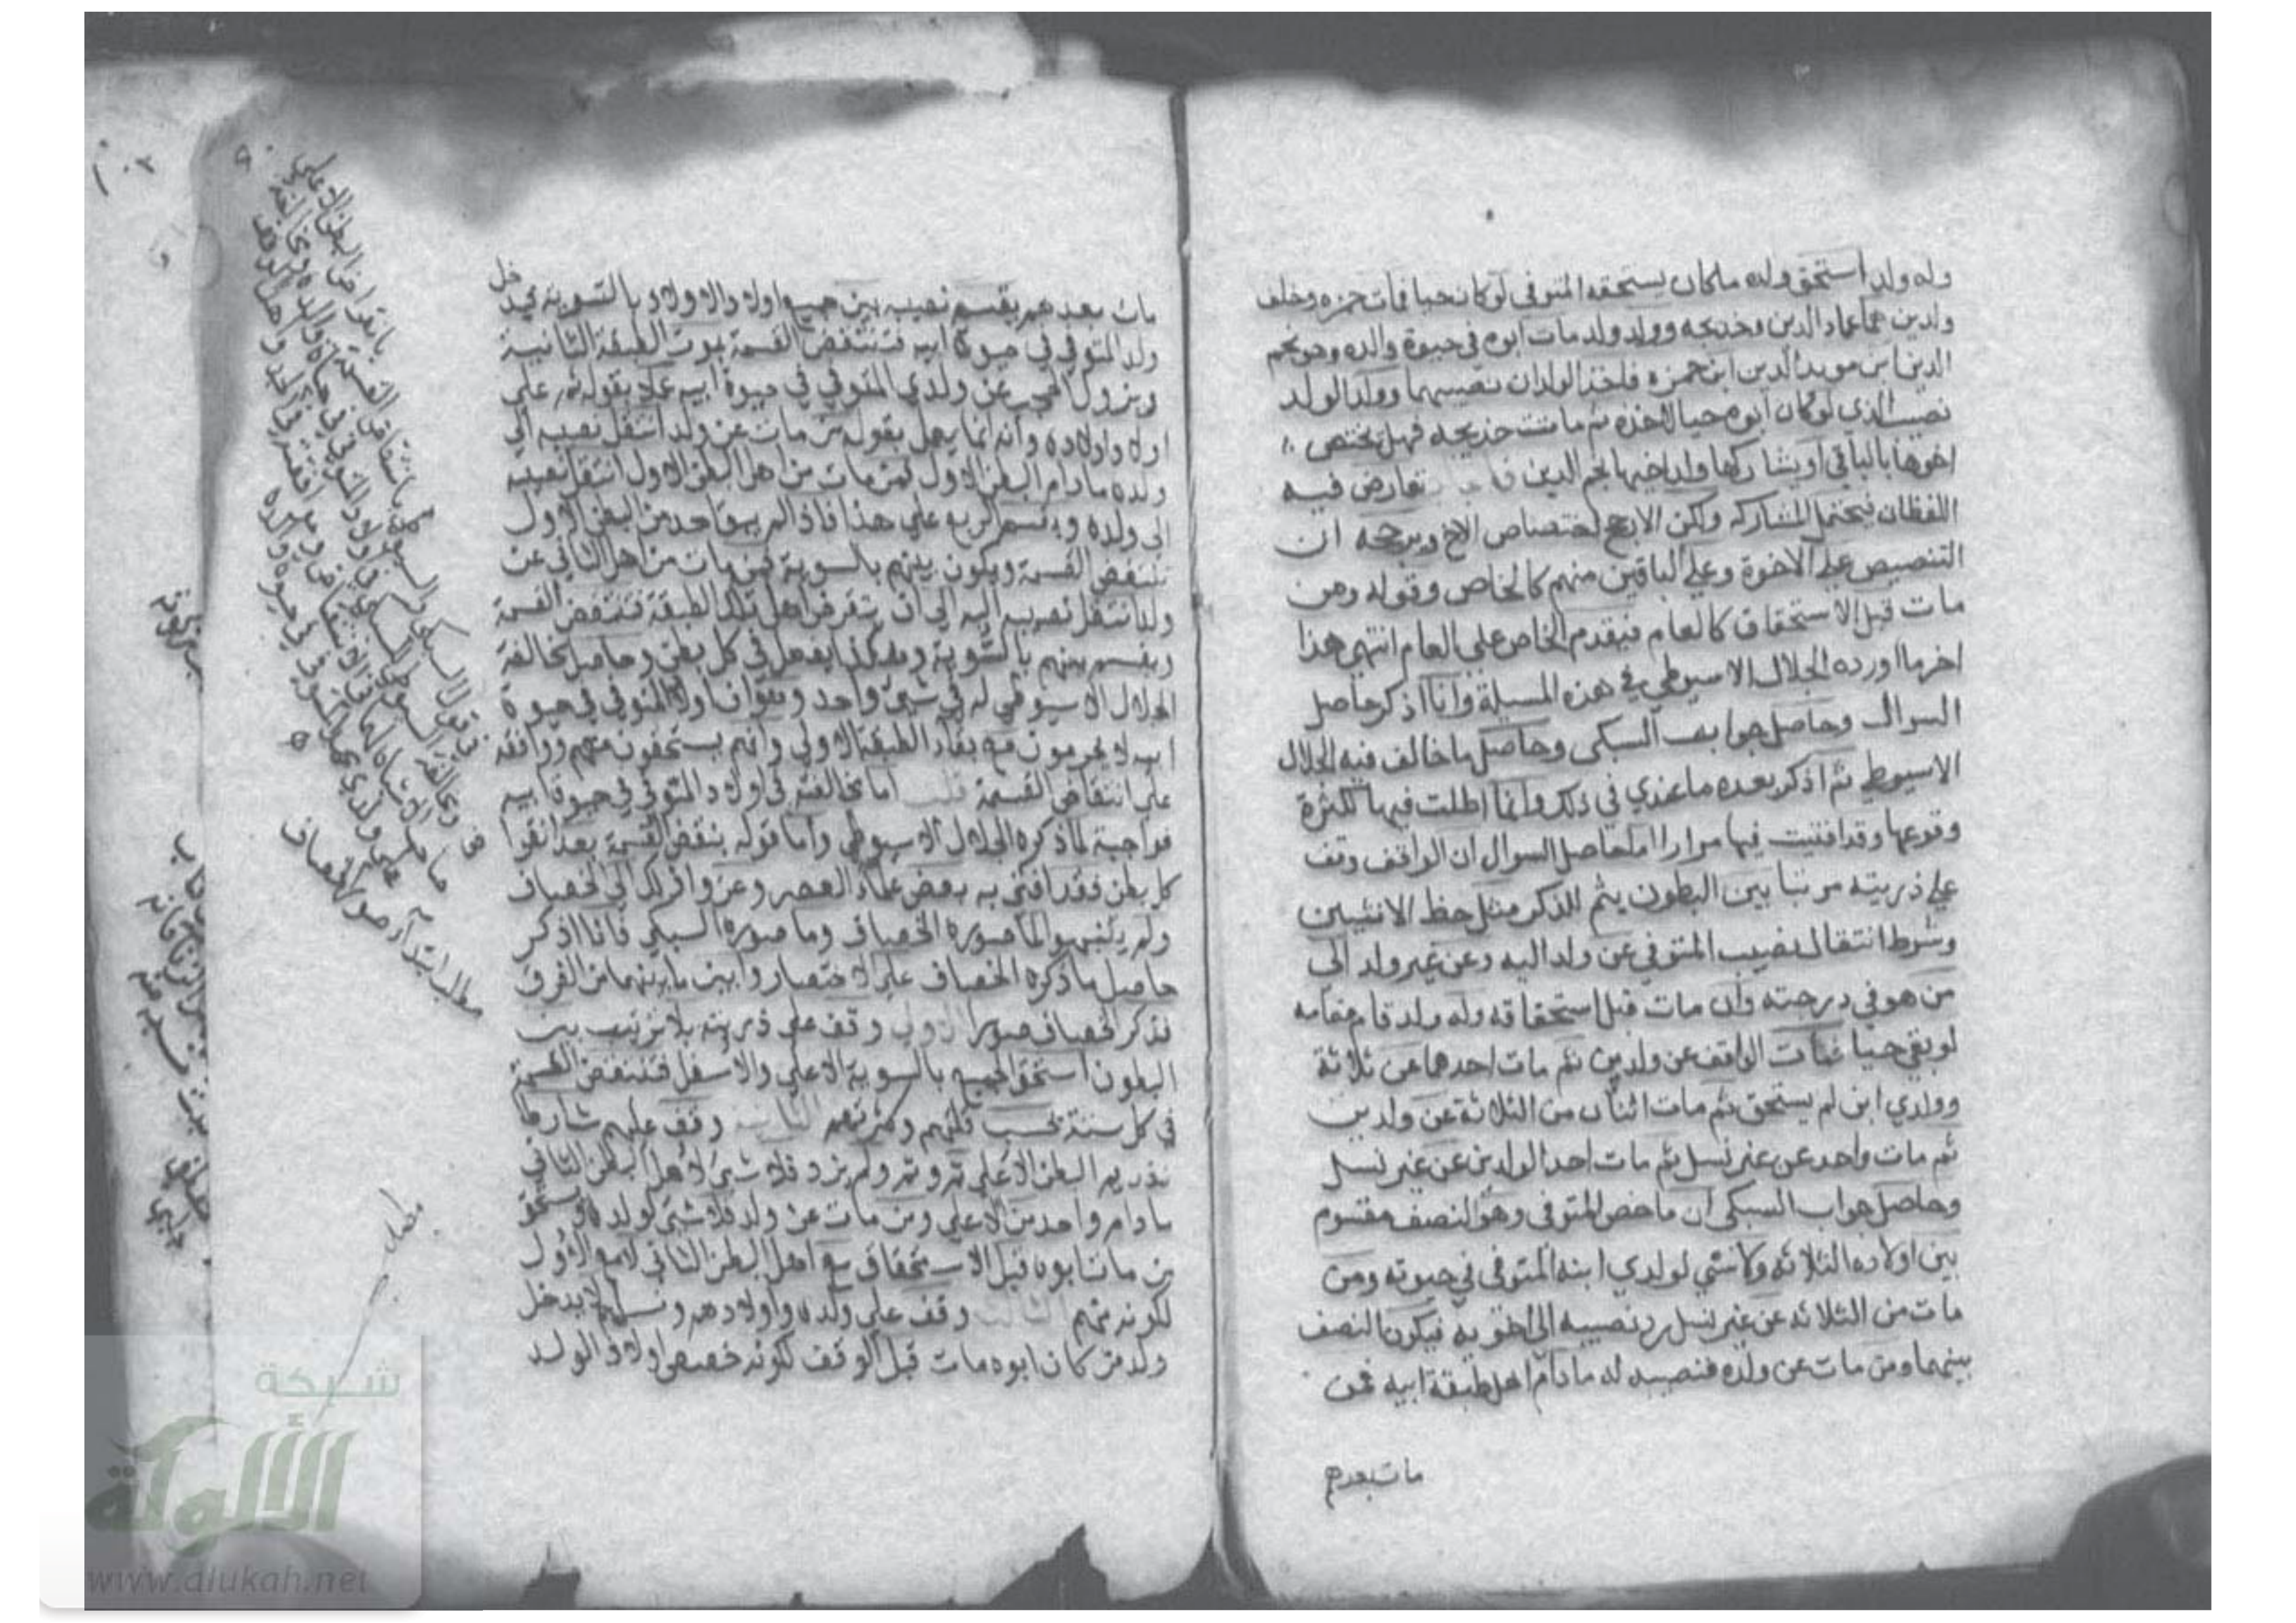 وله ولد استحق ولده ماكان يستحقه المتوفى لو كان حيا فمات حمزه وخلف
ولدين هما عماد الدين وخديجه وولد ولد مات ابوه في حيوة والده وهو نجم
الدين ابن مويد الدين ابن حمزه فاخذ الولدان نصيبهما وولد الولد
نصيب الذي لو كان ابوه حيا لاخذه ثم ماتت خديجه فهل يختص
اخوها بالباقي او يشاركها ولد اخيها نجم الدين تعارض فيه
اللفظان فيحتمل المشاركه ولكن الارجح اختصاص الاخ ويرجحه ان
التنصيص على الاخوة وعلى الباقين منهم كالخاص وقوله ومن
مات قبل الاستحقاق كالعام فيقدم الخاص على العام انتهى هذا
اخر ما اورده الجلال الاسيوطي في هذه المسيلة وانا اذكر حاصل
السوال وحاصل جواب السبكي وحاصل ما خالف فيه الجلال
الاسيوطي ثم اذكر بعده ما عندي في ذلك وانما اطلت فيها لكثرة
وقوعها وقد افتيت فيها مرارا اما حاصل السوال ان الواقف وقف
على ذريته مرتبا بين البطون بثم للذكر مثل حظ الانثيين
وشرط انتقال نصيب المتوفي عن ولد اليه وعن غير ولد الى
من هو في درجته وان مات قبل استحقاقه وله ولد قام مقامه
لو بقي حيا فمات الواقف عن ولدين ثم مات احدهما عن ثلاثة
وولدي ابن لم يستحق ثم مات اثنان من الثلاثة عن ولدين
ثم مات واحد عن غير نسل ثم مات احد الولدين عن غير نسل
وحاصل جواب السبكي ان ما خص المتوفى وهو النصف مقسوم
بين اولاده الثلاثه ولا شي لولدي ابنه المتوفى في حيوته ومن
مات من الثلاثه عن غير نسل رد نصيبه الى اخويه فيكون النصف
بينهما ومن مات عن ولده فنصيبه له ما دام اهل طبقة ابيه فمن
مات بعدهم
مات بعدهم يقسم نصيبه بين جميع اولاد الاولاد بالتسوية فيدخل
ولد المتوفي في حيوة ابيه فتنتقض القسمة بموت الطبقة الثانية
ويزول الحجب عن ولدي المتوفي في حيوة ابيه عملا بقوله ثم على
اولاد اولاده وانه انما يعمل بقوله من مات عن ولد انتقل نصيبه الى
ولده ما دام البطن الاول فمن مات من اهل البطن الاول انتقل نصيبه
الى ولده ويقسم الريع على هذا فاذا لم يبق احد من البطن الاول
تنتقض القسمة ويكون بينهم بالسوية فمن مات من اهل الثاني عن
ولد انتقل نصيبه اليه الى ان ينقرض اهل تلك الطبقة فتنتقض القسمة
ويقسم بينهم بالسوية وهكذا يفعل في كل بطن وحاصل مخالفة
الجلال الاسيوطي له في شي واحد وهو ان اولاد المتوفي في حيوة
ابيه لا يحرمون مع بقاء الطبقة الاولى وانهم يستحقون معهم ووافقه
على انتقاض القسمة قلت اما مخالفته في اولاد المتوفي في حيوة ابيه
فواجبة لما ذكره الجلال الاسيوطي واما قوله بنقض القسمة بعد انقراض
كل بطن فقد افتى به بعض علماء العصر وعزوا ذلك الى الخصاف
ولم يتنبهوا لما صوره الخصاف وما صوره السبكي فانا اذكر
حاصل ما ذكره الخصاف على الاختصار وابين ما بينهما من الفرق
فذكر الخصاف صورا الاولى وقف على ذريته بلا ترتيب بين
البطون استحق الجميع بالسوية الاعلى والاسفل فتنتقض القسمة
في كل سنة بحسب قلتهم وكثرتهم الثانية وقف عليهم شارطا
تقديم البطن الاعلى ثم وثم ولم يزد فلا شي لاهل البطن الثاني
ما دام واحد من الاعلى ومن مات عن ولد فلا شي لولده ويستحق
من مات ابوه قبل الاستحقاق مع اهل البطن الثاني لا مع الاول
لكونه منهم الثالثة وقف على ولده واولادهم ونسلهم لا يدخل
ولد من كان ابوه مات قبل الوقف لكونه خصص اولاد الولد
مطلب ابتدا صور الخصاف
مطلب
شبكة
الألوكة
www.alukah.net